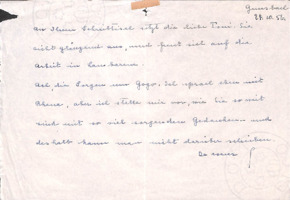 Gunsbach
28.10.52
An Ihrem Schreibtisch sitzt die liebe Toni. Sie
sieht glänzend aus, und freut sich auf die
Arbeit in Lambarene.
Ach die Sorgen um Gogo. Ich sprach eben mit
Rhena, aber ich stelle mir vor, wie Sie so weit
sind mit so viel sorgenden Gedanken und
deshalb kann man nicht darüber schreiben.